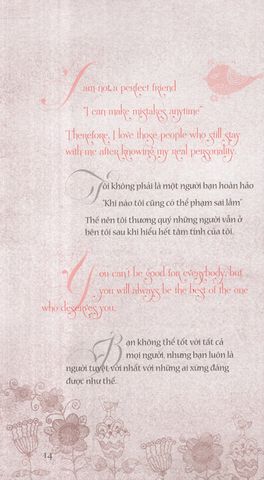 I am not a perfect friend
"I can make mistakes anytime"
Therefore, I love those people who still stay
with me after knowing my real personality.
Tôi không phải là một người bạn hoàn hảo
"Khi nào tôi cũng có thể phạm sai lầm"
Thế nên tôi thương quý những người vẫn ở
bên tôi sau khi hiểu hết tâm tính của tôi.
You can't be good for everybody, but
you will always be the best of the one
who deserves you.
Bạn không thể tốt với tất cả
mọi người, nhưng bạn luôn là
người tuyệt vời nhất với những ai xứng đáng
được như thế.
14